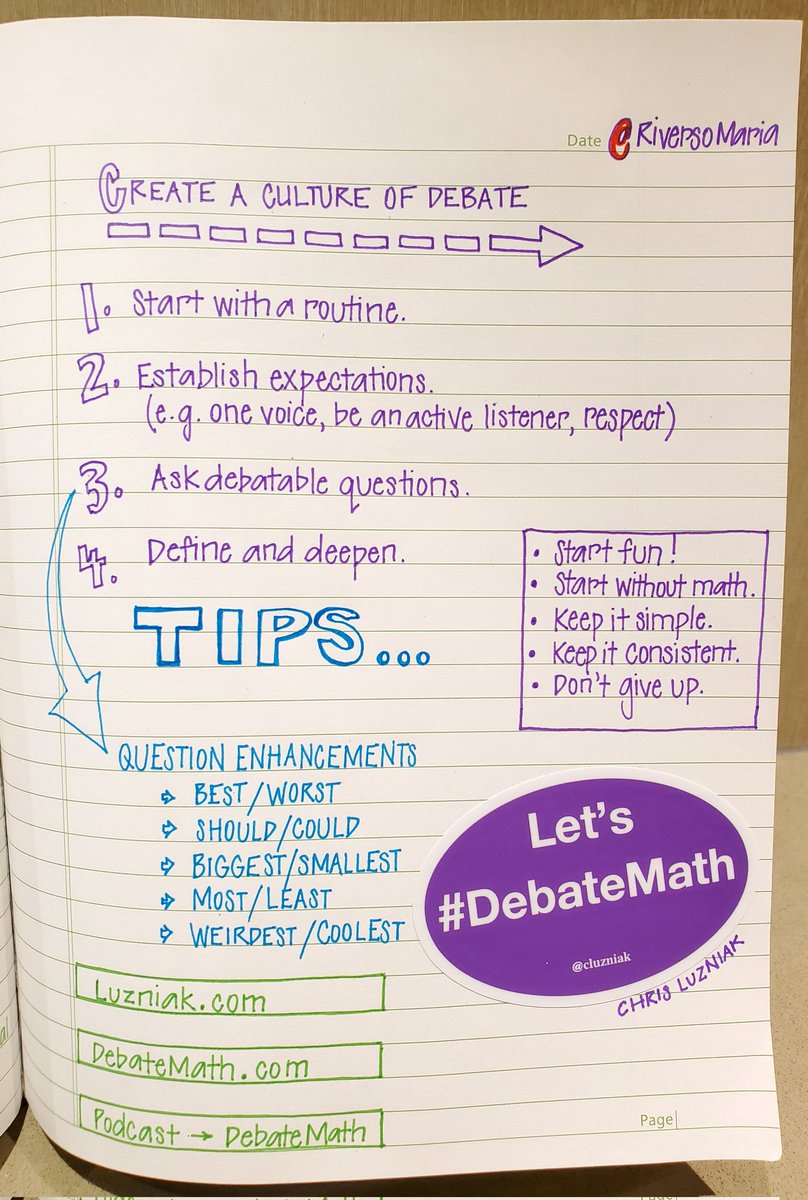 Date @RiversoMaria
CREATE A CULTURE OF DEBATE
1. Start with a routine.
2. Establish expectations.
(e.g. one voice, be an active listener, respect)
3. Ask debatable questions.
4. Define and deepen.
• Start fun!
• Start without math.
• Keep it simple.
• Keep it consistent.
• Don't give up.
TIPS...
QUESTION ENHANCEMENTS
⇨ BEST/WORST
⇨ SHOULD/COULD
⇨ BIGGEST/SMALLEST
⇨ MOST/LEAST
⇨ WEIRDEST/COOLEST
Let's
#DebateMath
@cluzniak
CHRIS LUZNIAK
Luzniak.com
DebateMath.com
Podcast → DebateMath
Page